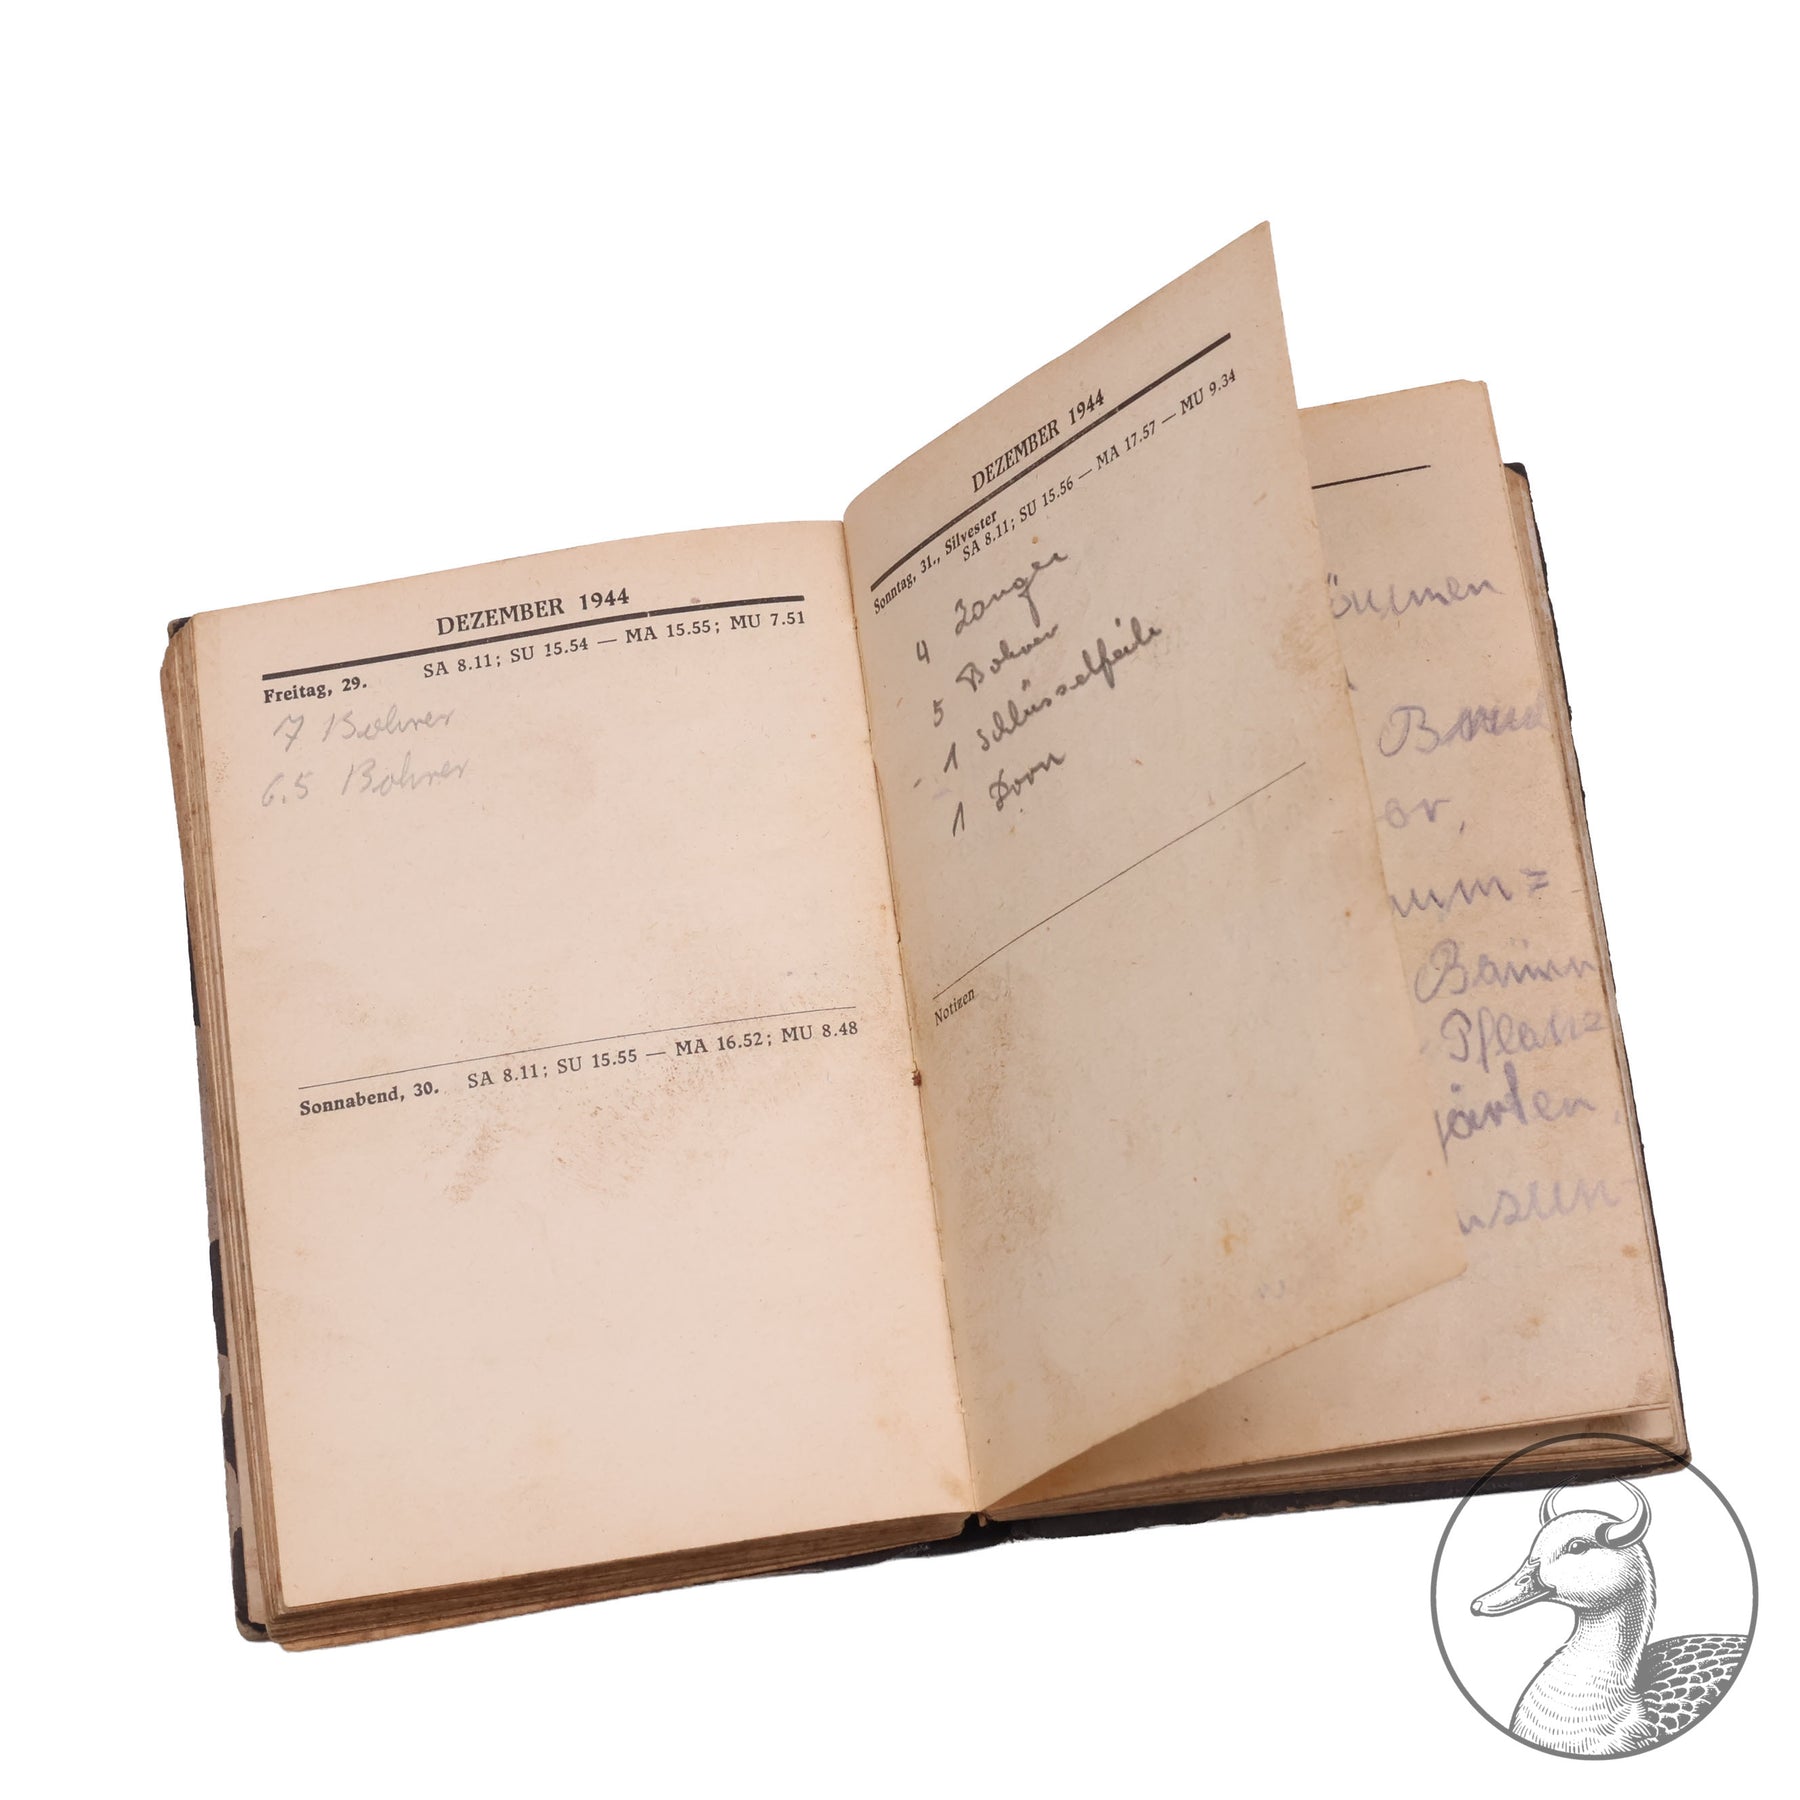 DEZEMBER 1944
Freitag, 29. SA 8.11; SU 15.54 — MA 15.55; MU 7.51
7 Bohrer
6.5 Bohrer
Sonnabend, 30. SA 8.11; SU 15.55 — MA 16.52; MU 8.48
DEZEMBER 1944
Sonntag, 31., Silvester
SA 8.11; SU 15.56 — MA 17.57 — MU 9.34
4 Zangen
5 Bohrer
1 Schlüsselfeile
1 Dorn
Notizen